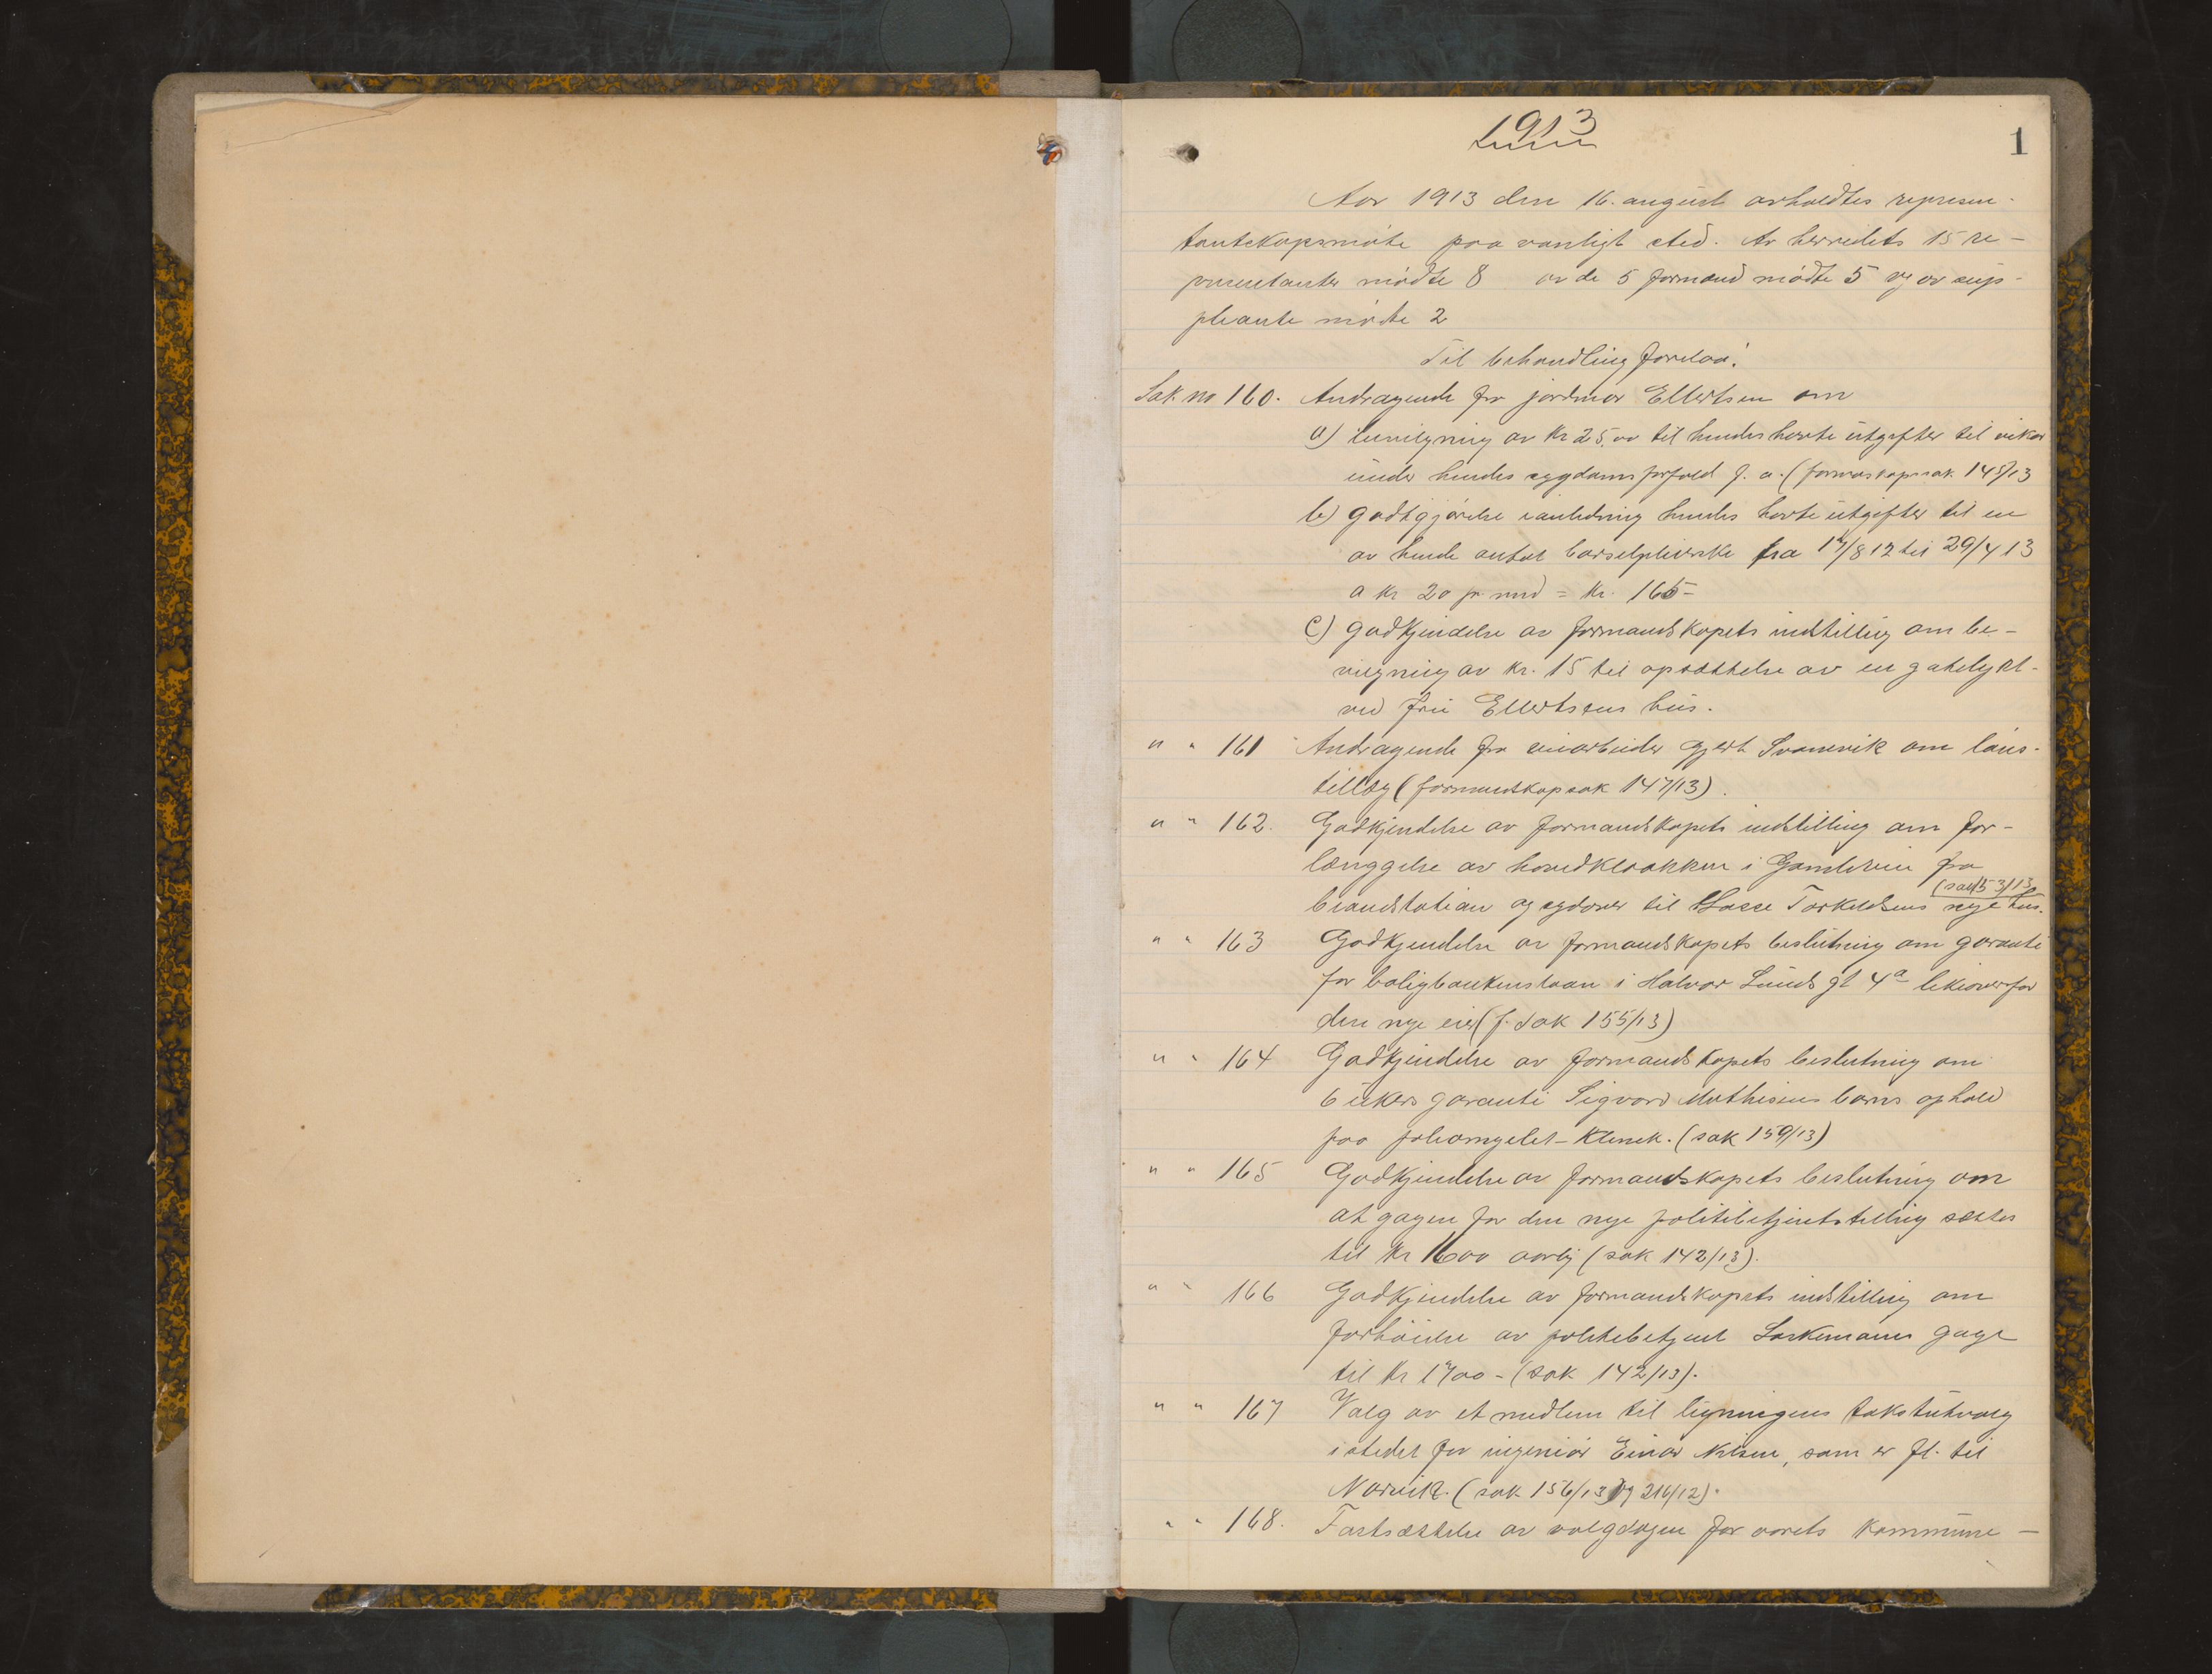 1913
1
Aar 1913 den 16. august avholdtes represen-
tantskapsmöte paa vanligt sted. Av herredets 15 re-
presentanter mödte 8 av de 5 formænd mödte 5 og av sup-
pleante mödte 2
Til behandling forelaa:
Sak no 160. Andragende fra jordmor Ellertsen om
a) bevilgning av kr 25,00 til hendes havte utgifter til vikar
under hendes sygdomsforfald f. a. (formaskapssak 145/13
b) godtgjörelse i anledning hendes havte utgifter til en
av hende antat barselpleierske fra 17/8 12 til 29/4 13
a kr 20 pr. mnd = kr. 165-
c) godkjendelse av formandskapets indstilling om be-
vilgning av kr. 15 til opsættelse av en gatelykt-
ved fru Ellertsens hus.
" " 161 Andragende fra Gjert Svanevik om löns-
tillæg (formandskapsak 147/13).
" " 162. Godkjendelse av formandskapets indstilling om for-
længgelse av hovedkloakken i fra
brandstation og sydover til Lasse Torkeldsens nye hus.
(sak 153/13
" " 163 Godkjendelse av formandskapets beslutning om garanti
for boligbankenslaan i Halvor Lunds gt 4a likeoverfor
den nye eier (f. sak 155/13)
" " 164 Godkjendelse av formandskapets beslutning om
6 ukers garanti Sigvard Mathisens barns ophold
paa -klinik. (sak 159/13)
" " 165 Godkjendelse av formandskapets beslutning om
at gagen for den nye politibetjentstilling sættes
til kr 1600 aarlig (sak 142/13).
" " 166 Godkjendelse av formandskapets indstilling om
forhöielse av politibetjent gage
til kr 1700 - (sak 142/13).
" " 167 Valg av et medlem til ligningens takstutvalg
istedet for ingeniör Einar Nilsen, som er fl. til
Narvik. (sak 156/13 og 216/12).
" " 168. Fastsættelse av valgdagen for aarets kommune-